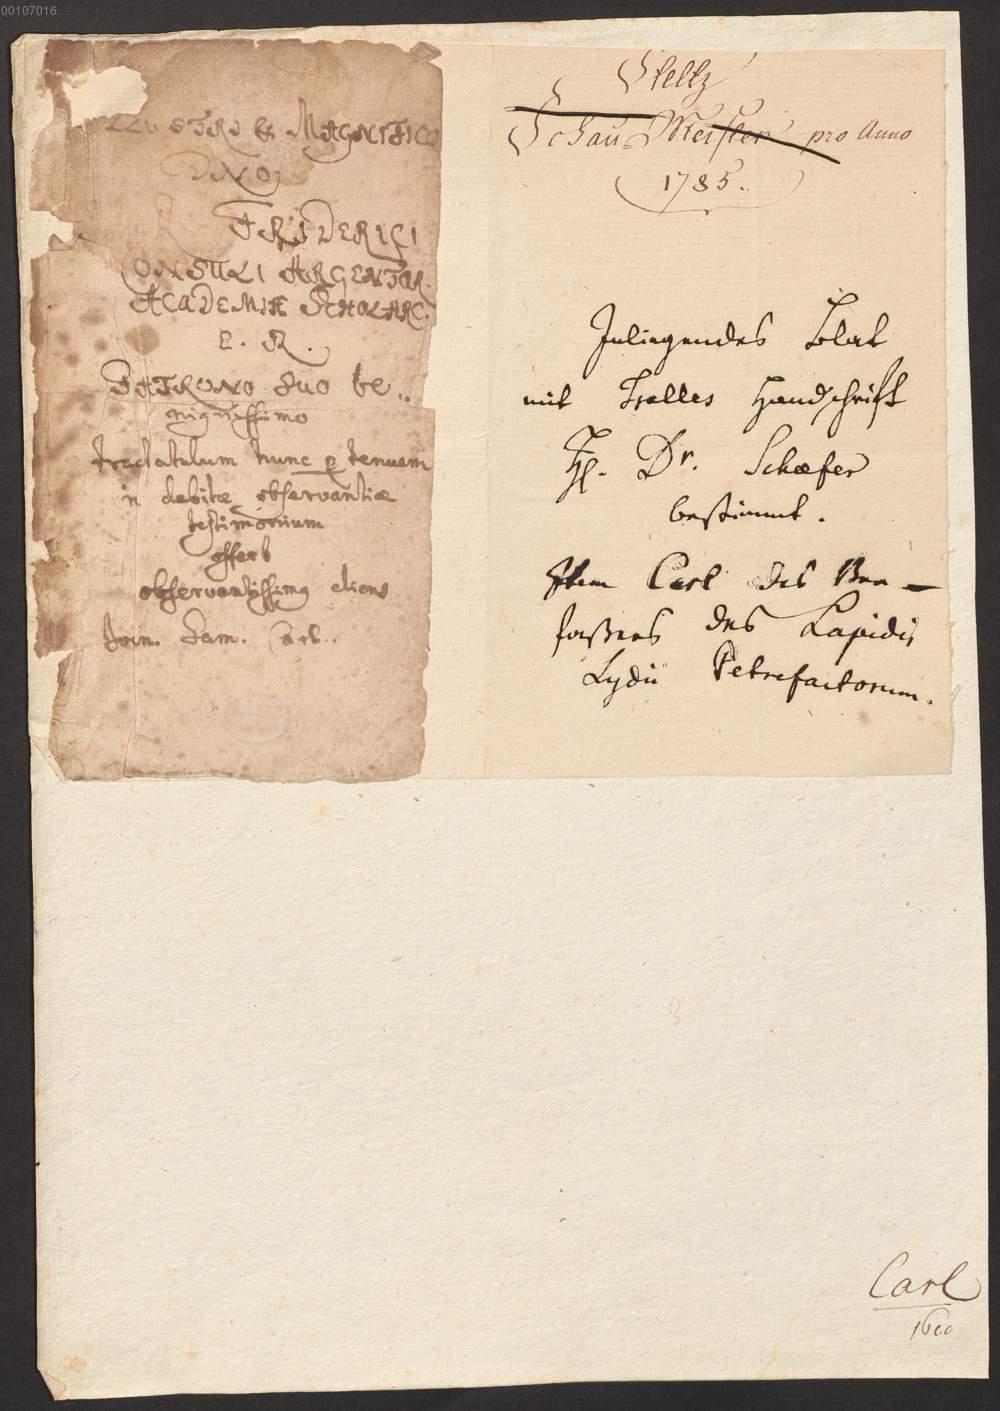 00107016
LLUSTRI & MAGNIFICO
DNO
FRIDERICI
CONSULI ARGENTOR.
ACADEMIÆ SCHOLARC.
PATRONO suo be..
nignissimo
tractatulum hunc tenuem
in debitæ observantiæ
testimonium
offert
observantissimg cliens
Join. Sam. Carl..
Steltz
Schau-Meister pro Anno
1785.
Inliegendes Blat
mit Tralles Handschrift
H. Dr. Schæfer
bestimmt.
Item Carl des Ver-
faßers des Lapidis
Lydii Petrefactorum.
Carl
1600